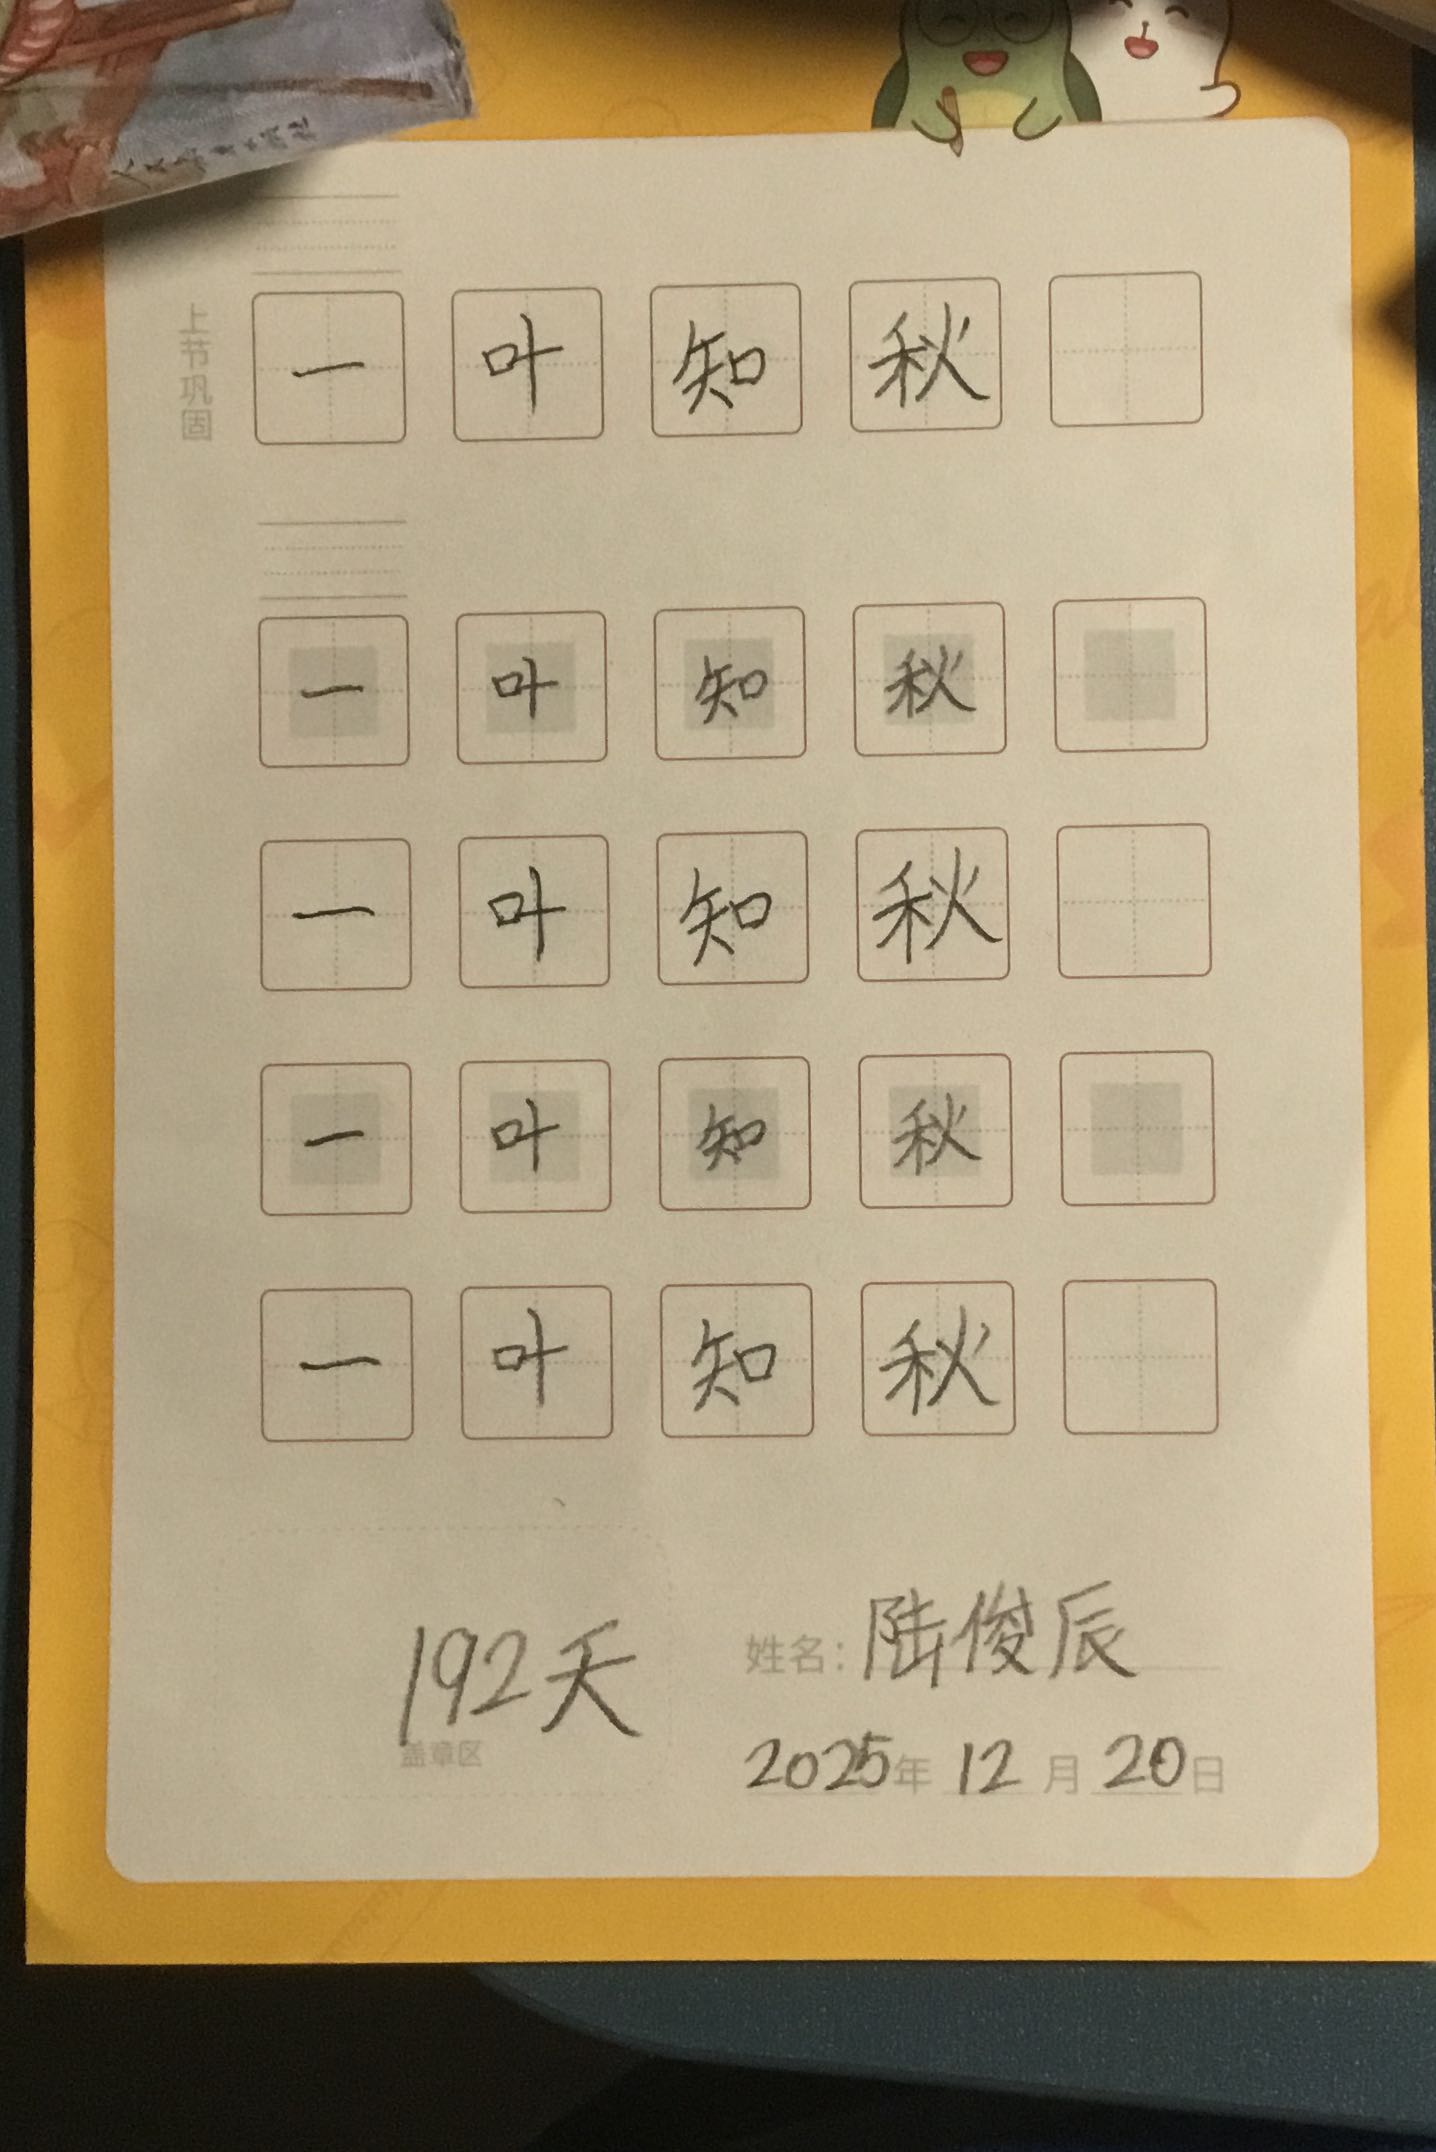 人民教育出版社
上节巩固
一 叶 知 秋
一 叶 知 秋
一 叶 知 秋
一 叶 知 秋
一 叶 知 秋
192天
盖章区
姓名：陆俊辰
2025年 12月 20日